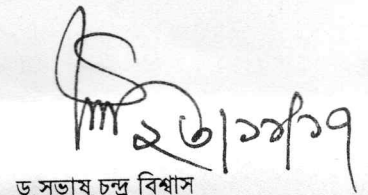 ২৬/১১/১৭
ড সভাষ চন্দ্র বিশ্বাস